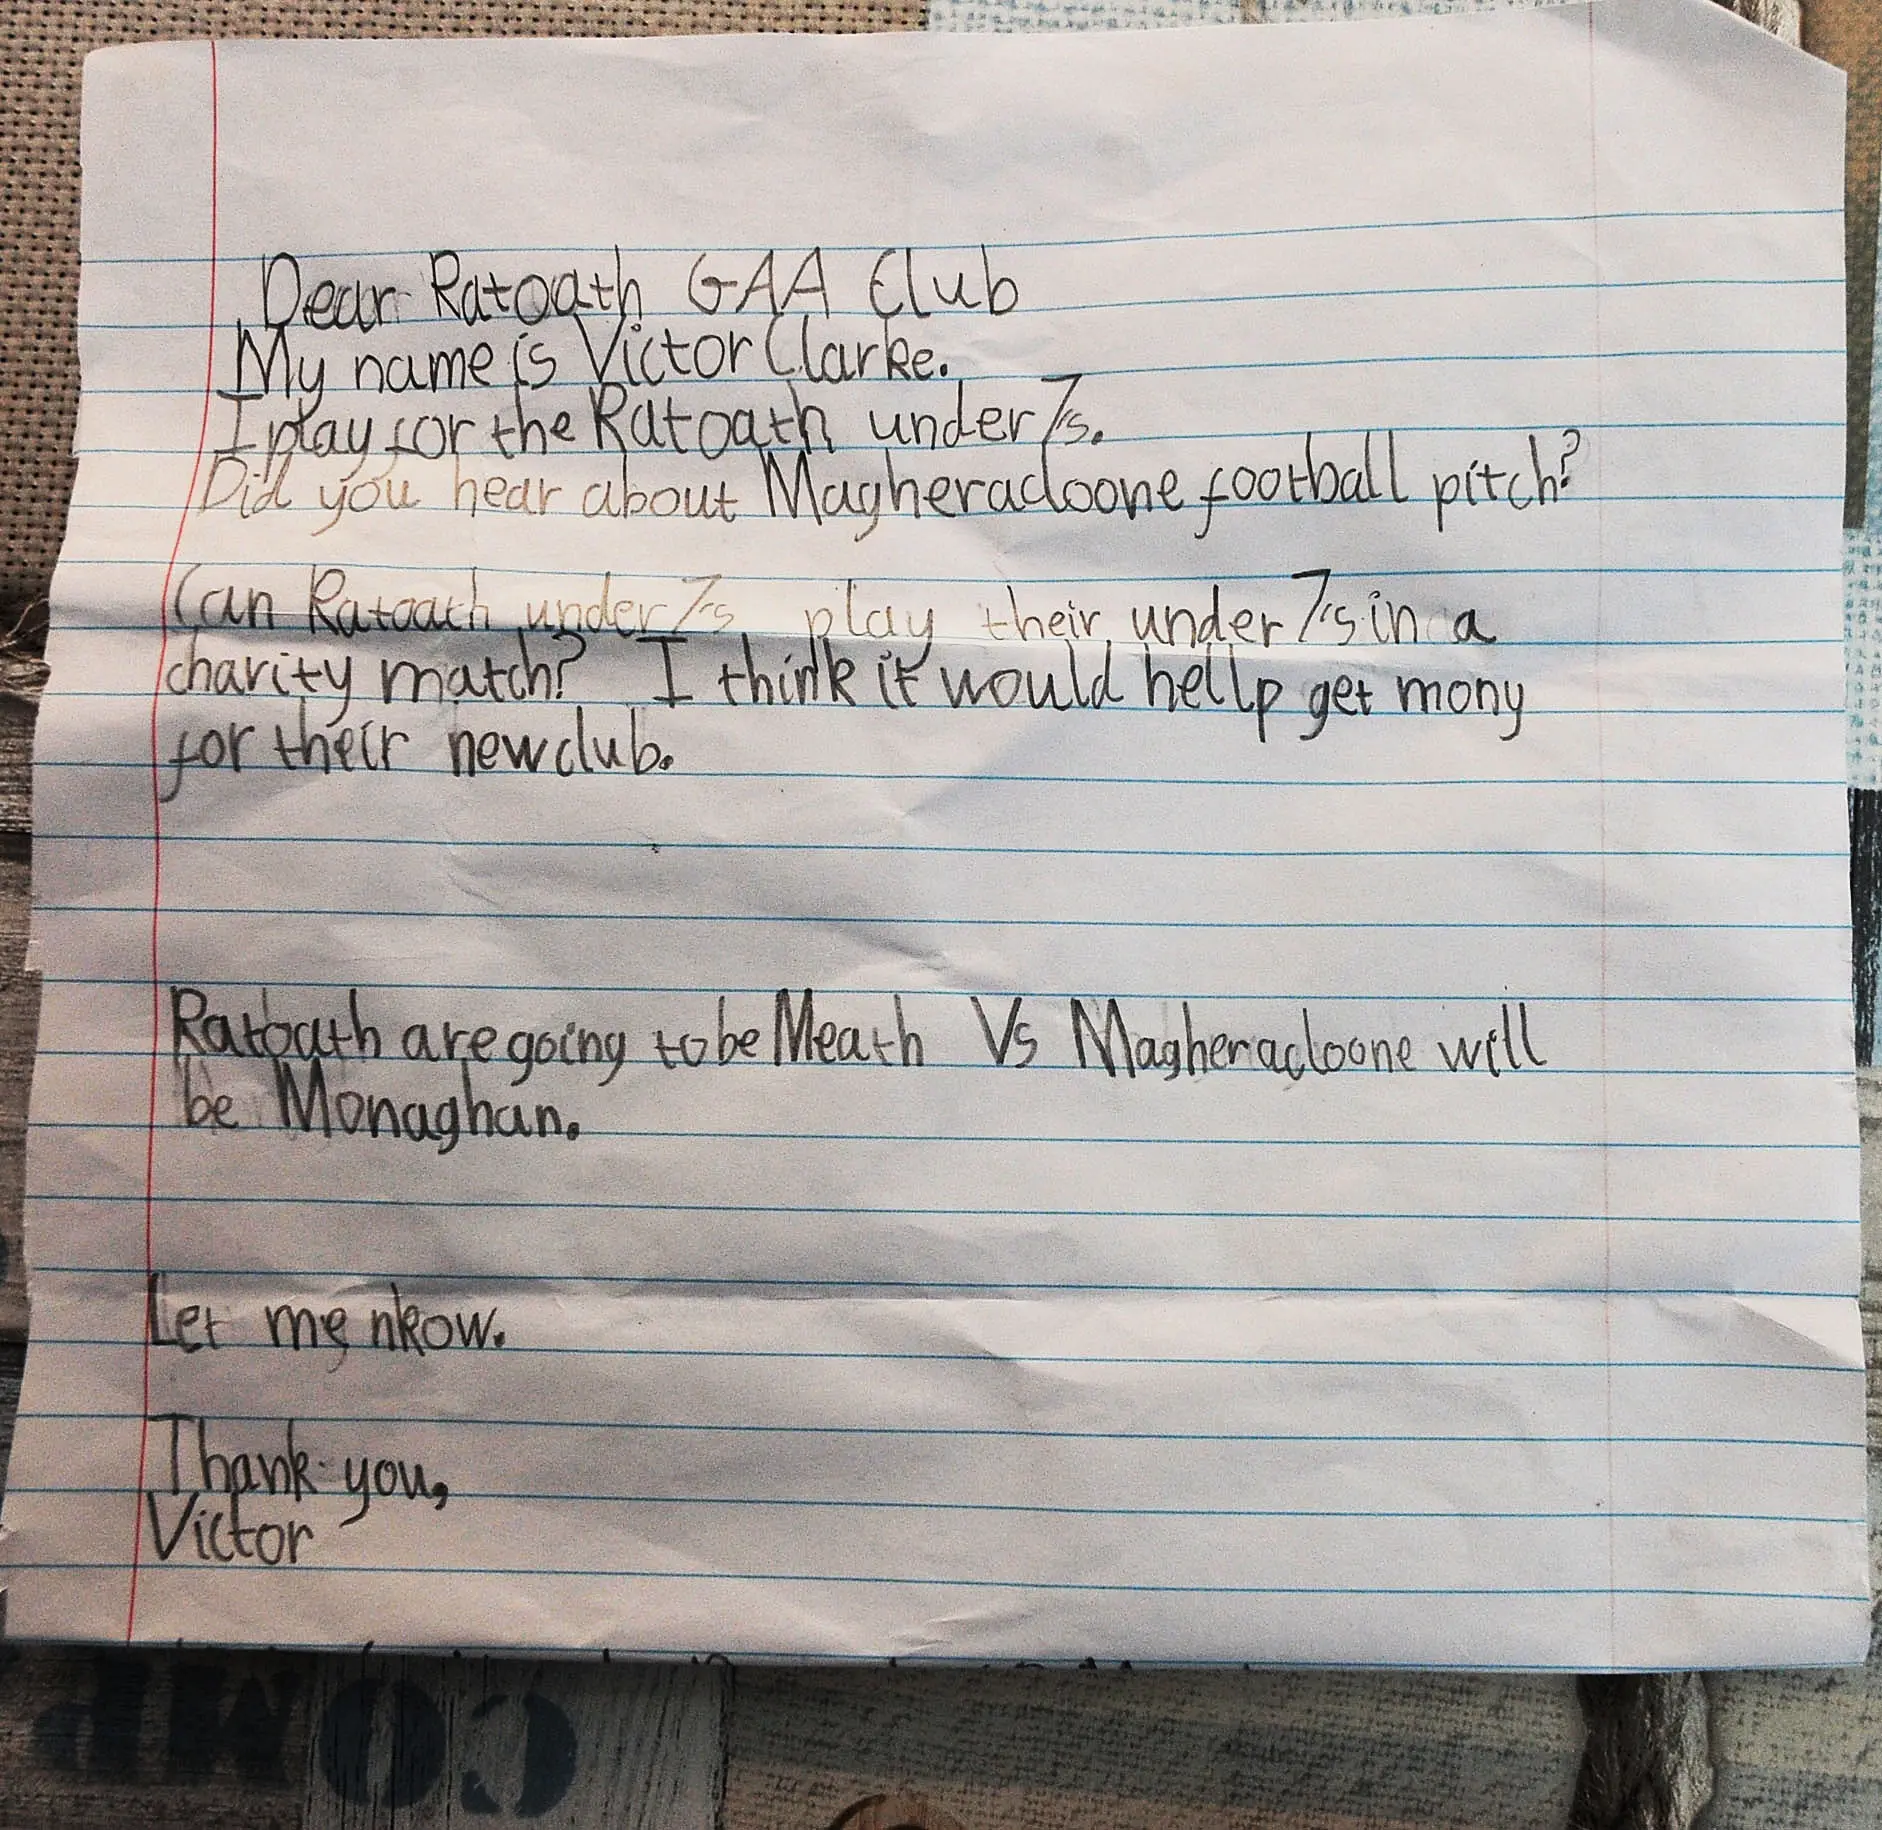 Dear Ratoath GAA Club
My name is Victor Clarke.
I play for the Ratoath under 7s.
Did you hear about Magheracloone football pitch?
Can Ratoath under 7's play their under 7's in a
charity match? I think it would hellp get mony
for their new club.
Ratoath are going to be Meath Vs Magheracloone will
be Monaghan.
Let me nkow.
Thank you,
Victor
COMP